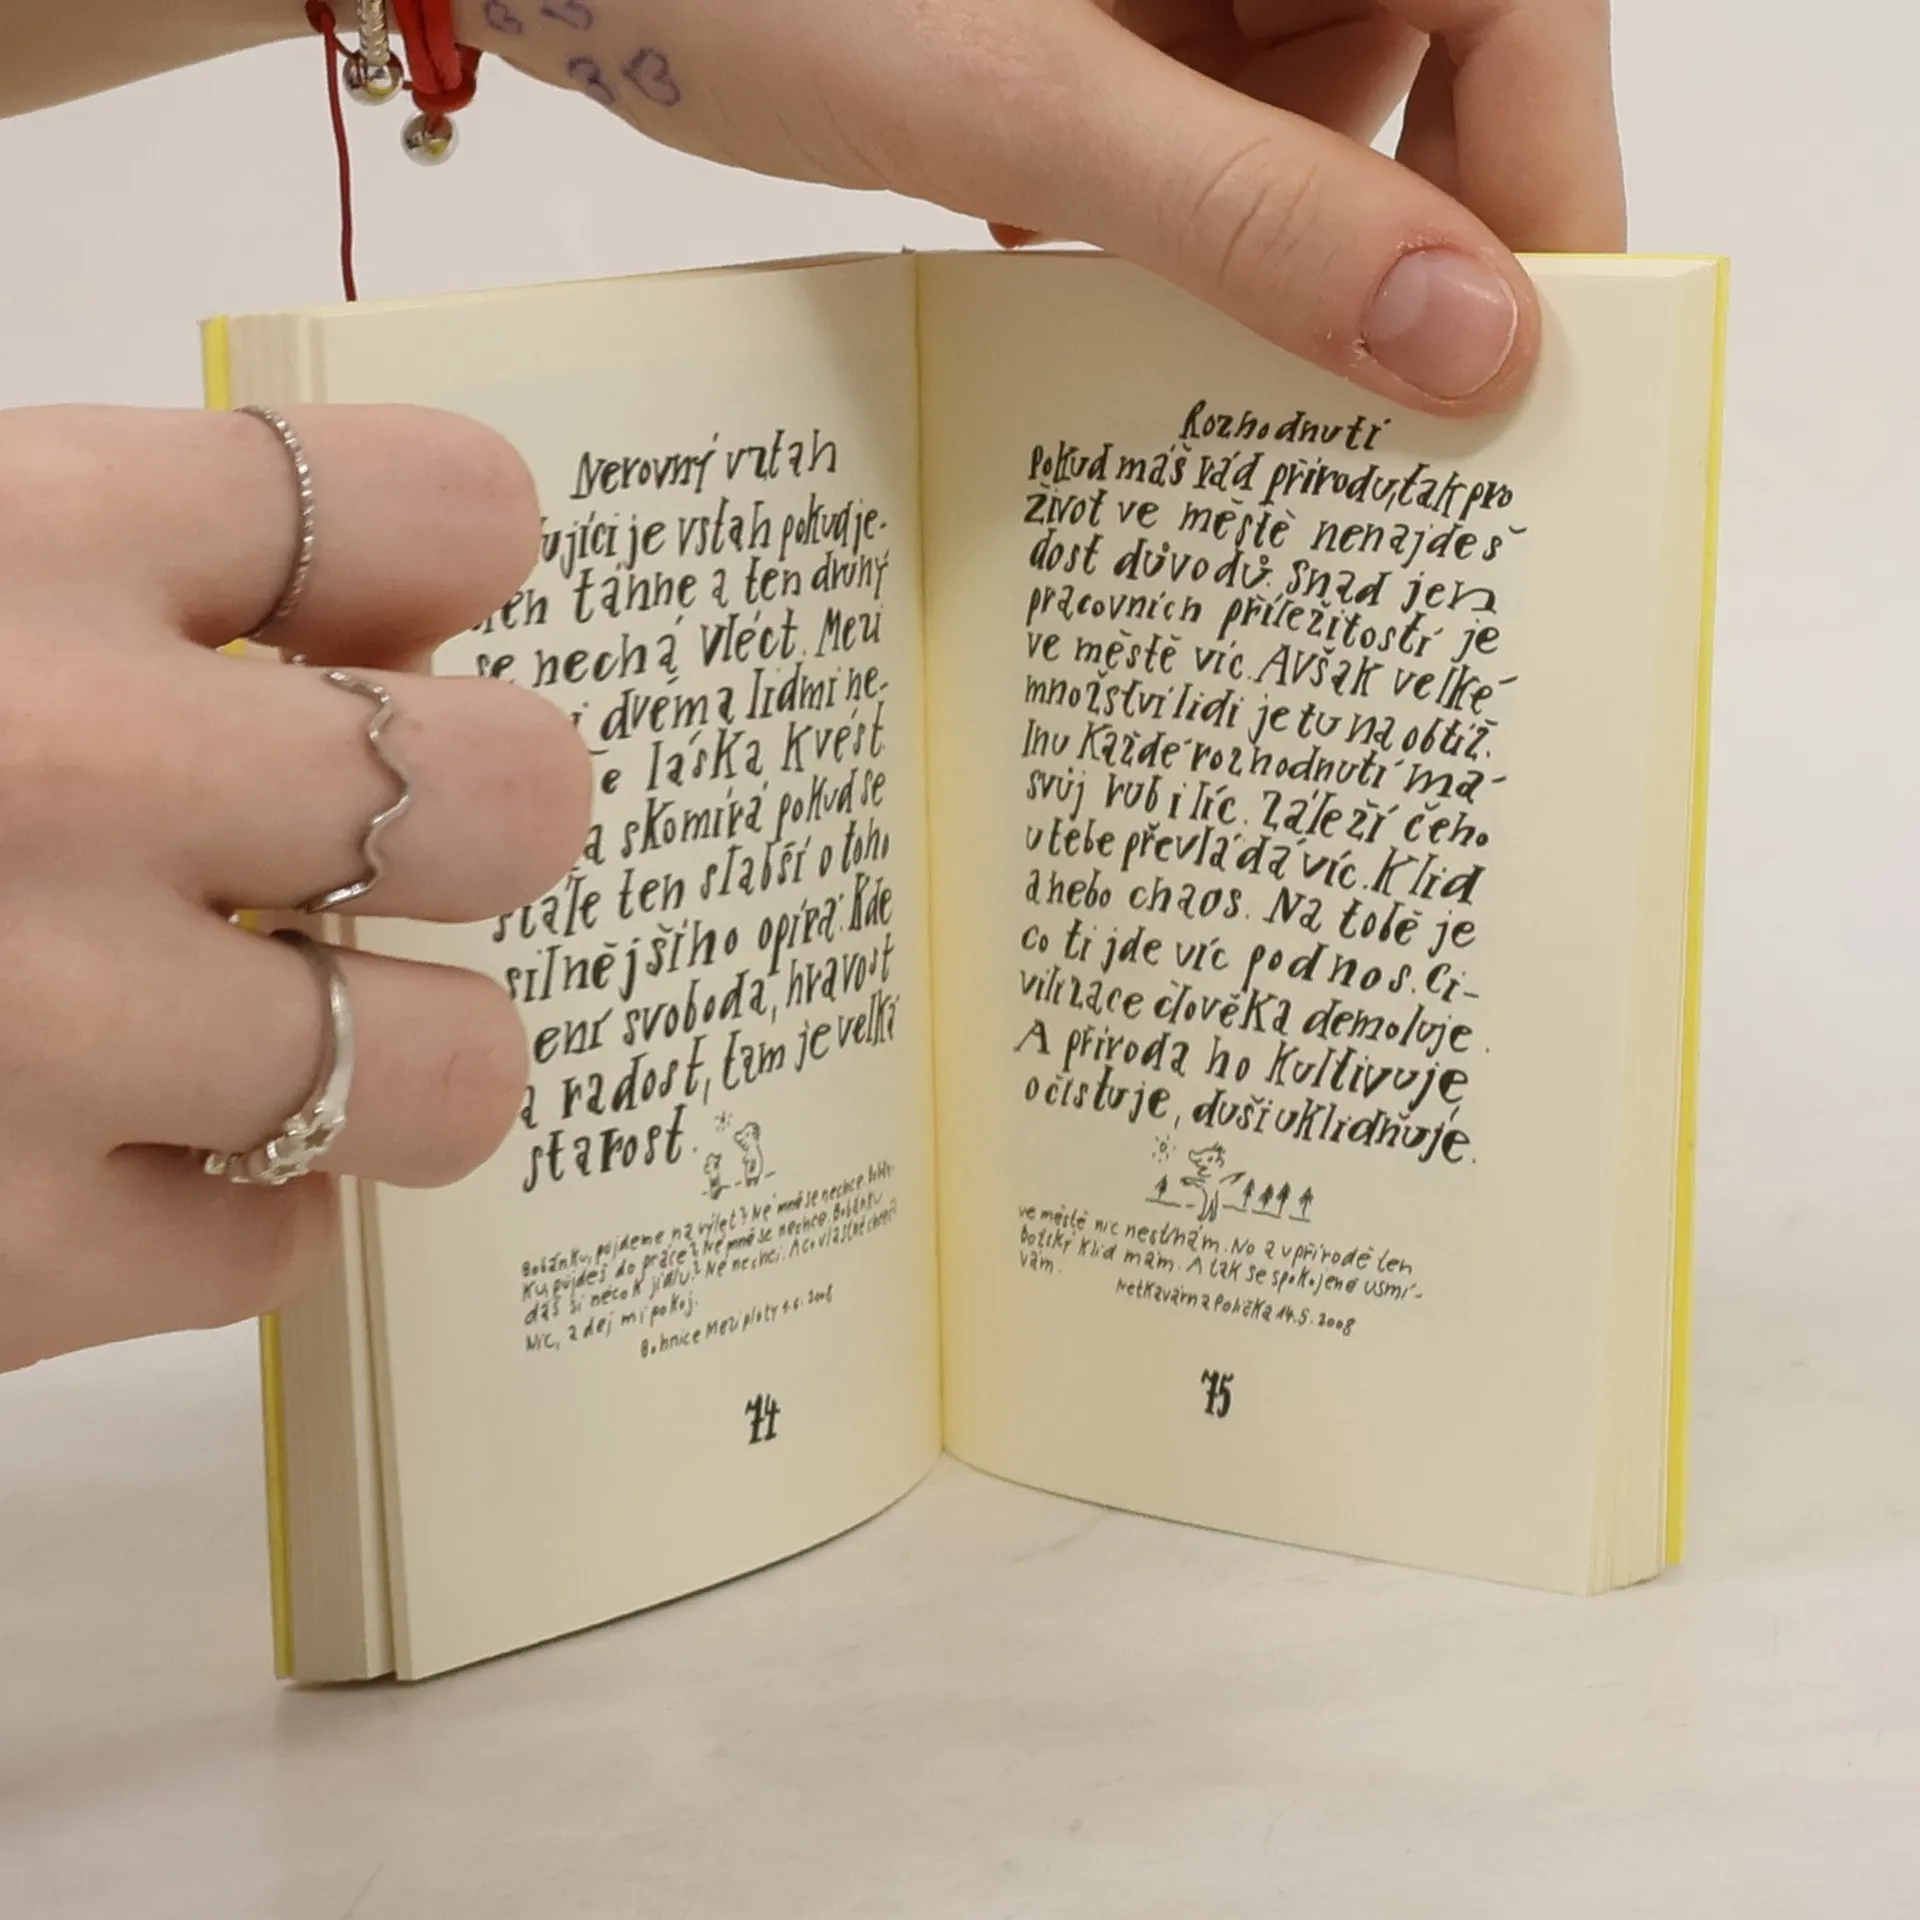 Nerovný vztah
ující je vstah pokud je-
táhne a ten druhý
se nechá vléct. Mezi
dvěma lidmi ne-
láska kvést
skomírá pokud se
stále ten slabší o toho
silnějšího opírá. Kde
není svoboda, hravost
a radost, tam je velká
starost.
Bobánku, půjdeme na výlet? Né mně se nechce. Bobán-
ku, půjdeš do práce? Né mně se nechce. Bobánku
dáš si něco k jídlu? Né nechci. A co vlastně chceš?
Nic, a dej mi pokoj.
Bohnice Mezi ploty 1.6.2008
74
Rozhodnutí
Pokud máš rád přírodu, tak pro
život ve městě nenajdeš
dost důvodů. Snad jen
pracovních příležitostí je
ve městě víc. Avšak velké
množství lidi je tu na obtíž.
Inu každé rozhodnutí má
svůj rub i líc. Záleží čeho
u tebe převládá víc. Klid
anebo chaos. Na tobě je
co ti jde víc pod nos. Ci-
vilizace člověka demoluje.
A příroda ho kultivuje
očistuje, duši uklidňuje.
ve městě nic nestíhám. No a v přírodě ten
božský klid mám. A tak se spokojeně usmí-
vám.
Netkavárna Polička 14.5.2008
75